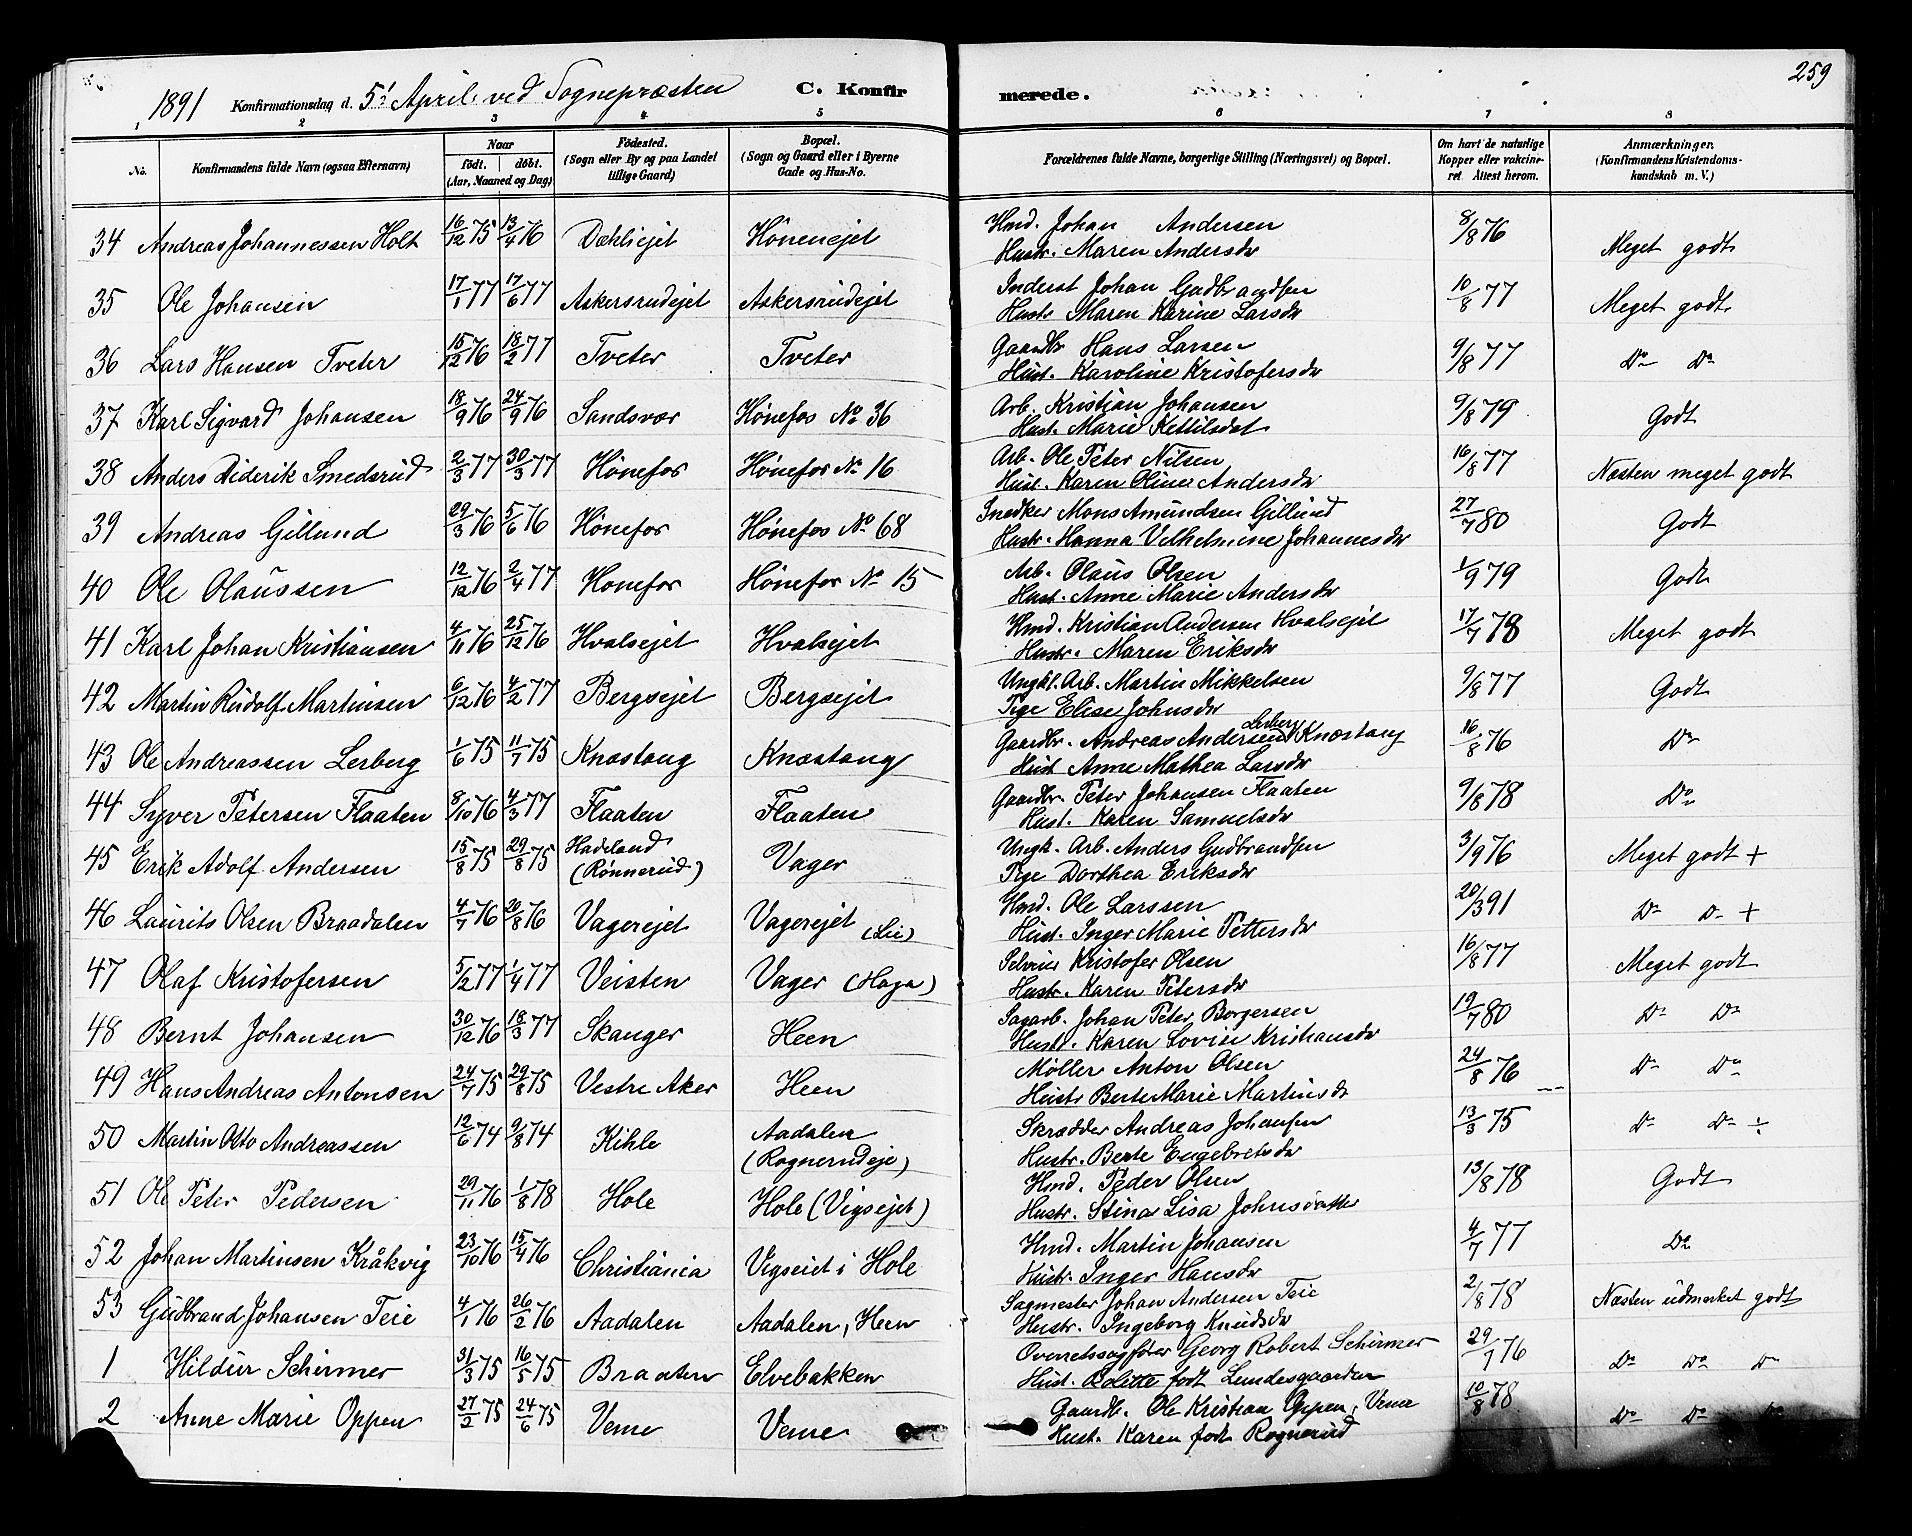 259
1891 Konfirmationsdag d. 5 April ved Sognepræsten C. Konfirmerede.
1 2 3 4 5 6 7 8
No. Konfirmandens fulde Navn (ogsaa Efternavn) Naar født. døbt. (Aar, Maaned og Dag) Fødested. (Sogn eller By og paa Landet tillige Gaard) Bopæl. (Sogn og Gaard eller i Byerne Gade og Hus-No. Forældrenes fulde Navne, borgerlige Stilling (Næringsvei) og Bopæl. Om havt de naturlige Kopper eller vakcineret. Attest herom. Anmærkninger. (Konfirmandens Kristendomskundskab m. V.)
34 Andreas Johannessen Holt 16/12 75 13/4 76 Dæhliejet Hønenejet Hmd. Johan Andersen 8/8 76 Meget godt
Hustr. Maren Andersdr
35 Ole Johansen 17/1 77 17/6 77 Askersrudejet Askersrudejet Inderst Johan Gudbrandsen 10/8 77 Meget godt
Hustr Maren Karine Larsdr
36 Lars Hansen Tveter 15/12 76 18/2 77 Tveter Tveter Gaardbr Hans Larsen 9/8 77 Do Do
Hust. Karoline Kristofersdr
37 Karl Sigvard Johansen 18/9 76 24/9 76 Sandsvær Hønefos No 36 Arb. Kristian Johansen 9/8 79 Godt
Hust. Marie Kettilsdat
38 Anders Diderik Smedsrud 2/3 77 30/3 77 Hønefos Hønefos No 16 Arb. Ole Peter Nilsen 16/8 77 Næsten meget godt
Hust. Karen Oline Andersdr
39 Andreas Gillund 29/3 76 5/6 76 Hønefos Hønefos No 68 Snedker Mons Amundsen Gillund 27/7 80 Godt
Hustr. Hanna Vilhelmine Johannesdr
40 Ole Olaussen 12/12 76 2/4 77 Honefos Hønefos No 15 Arb. Olaus Olsen 1/9 79 Godt
Hust. Anne Marie Andersdr
41 Karl Johan Kristiansen 4/11 76 25/12 76 Hvalsejet Hvalsejet Hmd. Kristian Andersen Hvalsejet 17/7 78 Meget godt
Hustr. Maren Eriksdr
42 Martin Rudolf Martinsen 6/12 76 4/2 77 Bergsejet Bergsejet Ungkl. Arb. Martin Mikkelsen 9/8 77 Godt
Pige Elise Johnsdr
43 Ole Andreassen Lerberg 1/6 75 11/7 75 Knæstang Knæstang Gaardbr. Andreas Andersen Lerberg Knæstang 16/8 76 Do
Hust Anne Mathea Larsdr
44 Syver Petersen Flaaten 8/10 76 4/3 77 Flaaten Flaaten Gaardbr. Peter Johansen Flaaten 9/8 78 Do
Hust. Karen Samuelsdr
45 Erik Adolf Andersen 15/8 75 29/8 75 Hadeland (Rønnerud) Vager Ungk. Arb. Anders Gudbrandsen 3/9 76 Meget godt +
Pige Dorthea Eriksdr
46 Laurits Olsen Braadalen 4/7 76 20/8 76 Vagerejet Vagerejet (Lie) Hmd. Ole Larssen 20/3 91 Do Do +
Hust. Inger Marie Pettersdr
47 Olaf Kristofersen 5/2 77 1/4 77 Veisten Vager (Haga) Selveier Kristofer Olsen 16/8 77 Meget godt
Hustr. Karen Petersdr
48 Bernt Johansen 30/12 76 18/3 77 Skanger Heen Sagarb. Johan Peter Borgersen 19/7 80 Do Do
Hustr. Karen Lovise Kristiansdr
49 Hans Andreas Antonsen 24/7 75 29/8 75 Vestre Aker Heen Møller Anton Olsen 24/8 76 Do Do
Hustr Berte Marie Martinsdr
50 Martin Otto Andreassen 12/6 74 9/8 74 Kihle Aadalen (Rognerudeje) Skrædder Andreas Johansen 13/3 75 Do Do ÷
Hustr. Berte Engebretsdr
51 Ole Peter Pedersen 29/11 76 1/8 78 Hole Hole (Vigsejet) Hmd. Peder Olsen 13/8 78 Godt
Hustr. Stina Lisa Johnsdatter
52 Johan Martinsen Kråkvig 23/10 76 15/4 76 Christiania Vigseiet i Hole Hmd. Martin Johansen 4/7 77 Do
Hustr. Inger Hansdr
53 Gudbrand Johansen Teie 4/1 76 26/2 76 Aadalen Aadalen, Heen Sagmester Johan Andersen Teie 2/8 78 Næsten udmerket godt
Hustr. Ingeborg Knudsdr
1 Hildur Schirmer 31/3 75 16/5 75 Braaten Elvebakken Overretssagfører Georg Robert Schirmer 29/7 76 Do Do Do
Hust. født Lundesgaarden
2 Anne Marie Oppen 27/2 75 24/6 75 Verne Verne Gaardb. Ole Kristian Oppen, Verne 10/8 78 Do Do Do
Hust. Karen født Rognerud